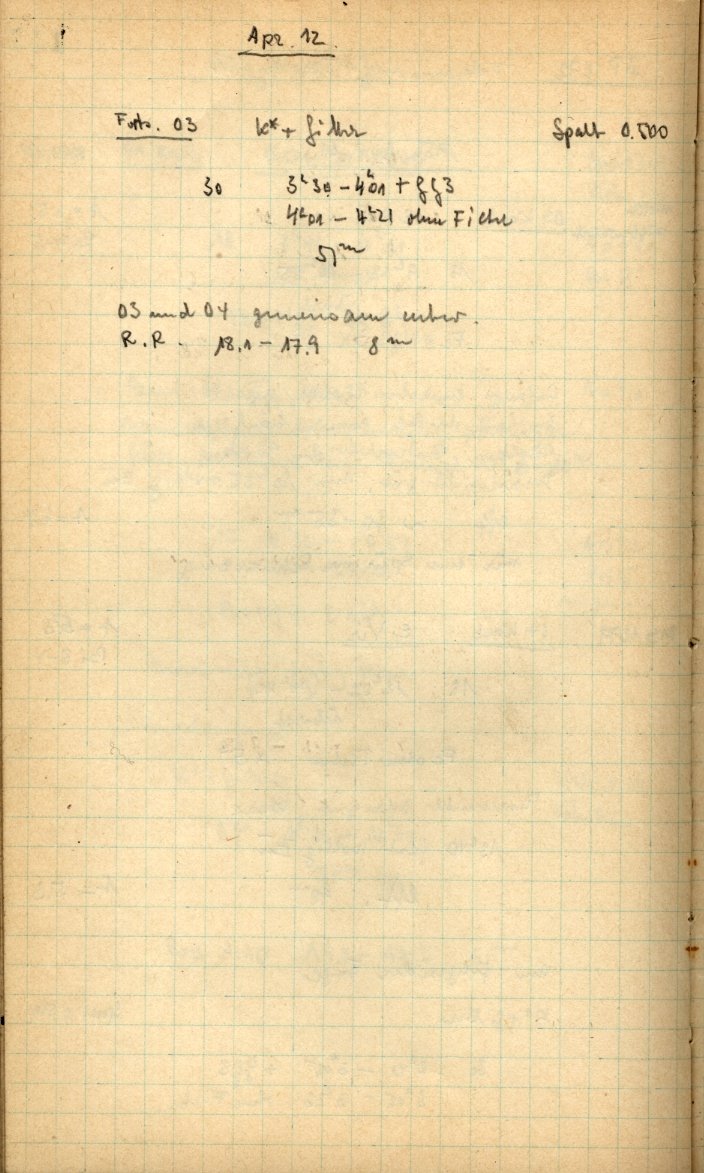 Apr. 12.
Forts. 03 K* + Spalt 0.500
30 3ʰ30 - 4ʰ01 + gg3
4ʰ01 - 4ʰ21 ohne Filter
51ᵐ
03 und 04 gemeinsam entw.
R.R. 18.1 - 17.9 8ᵐ